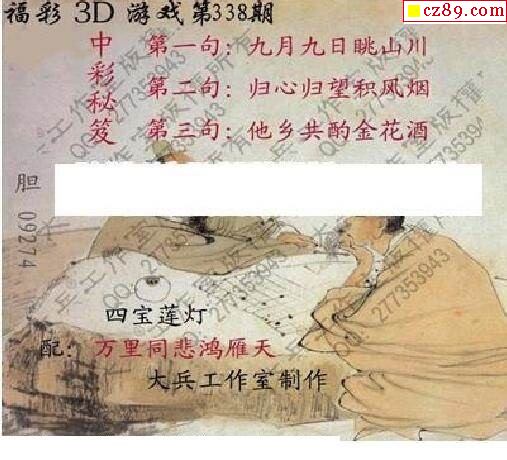 福彩 3D 游戏第338期
cz89.com
中彩秘笈
第一句：九月九日眺山川
第二句：归心归望积风烟
第三句：他乡共酌金花酒
胆 09274
四宝莲灯
配：万里同悲鸿雁天
大兵工作室制作
大兵工作室版权所有
QQ:277353943